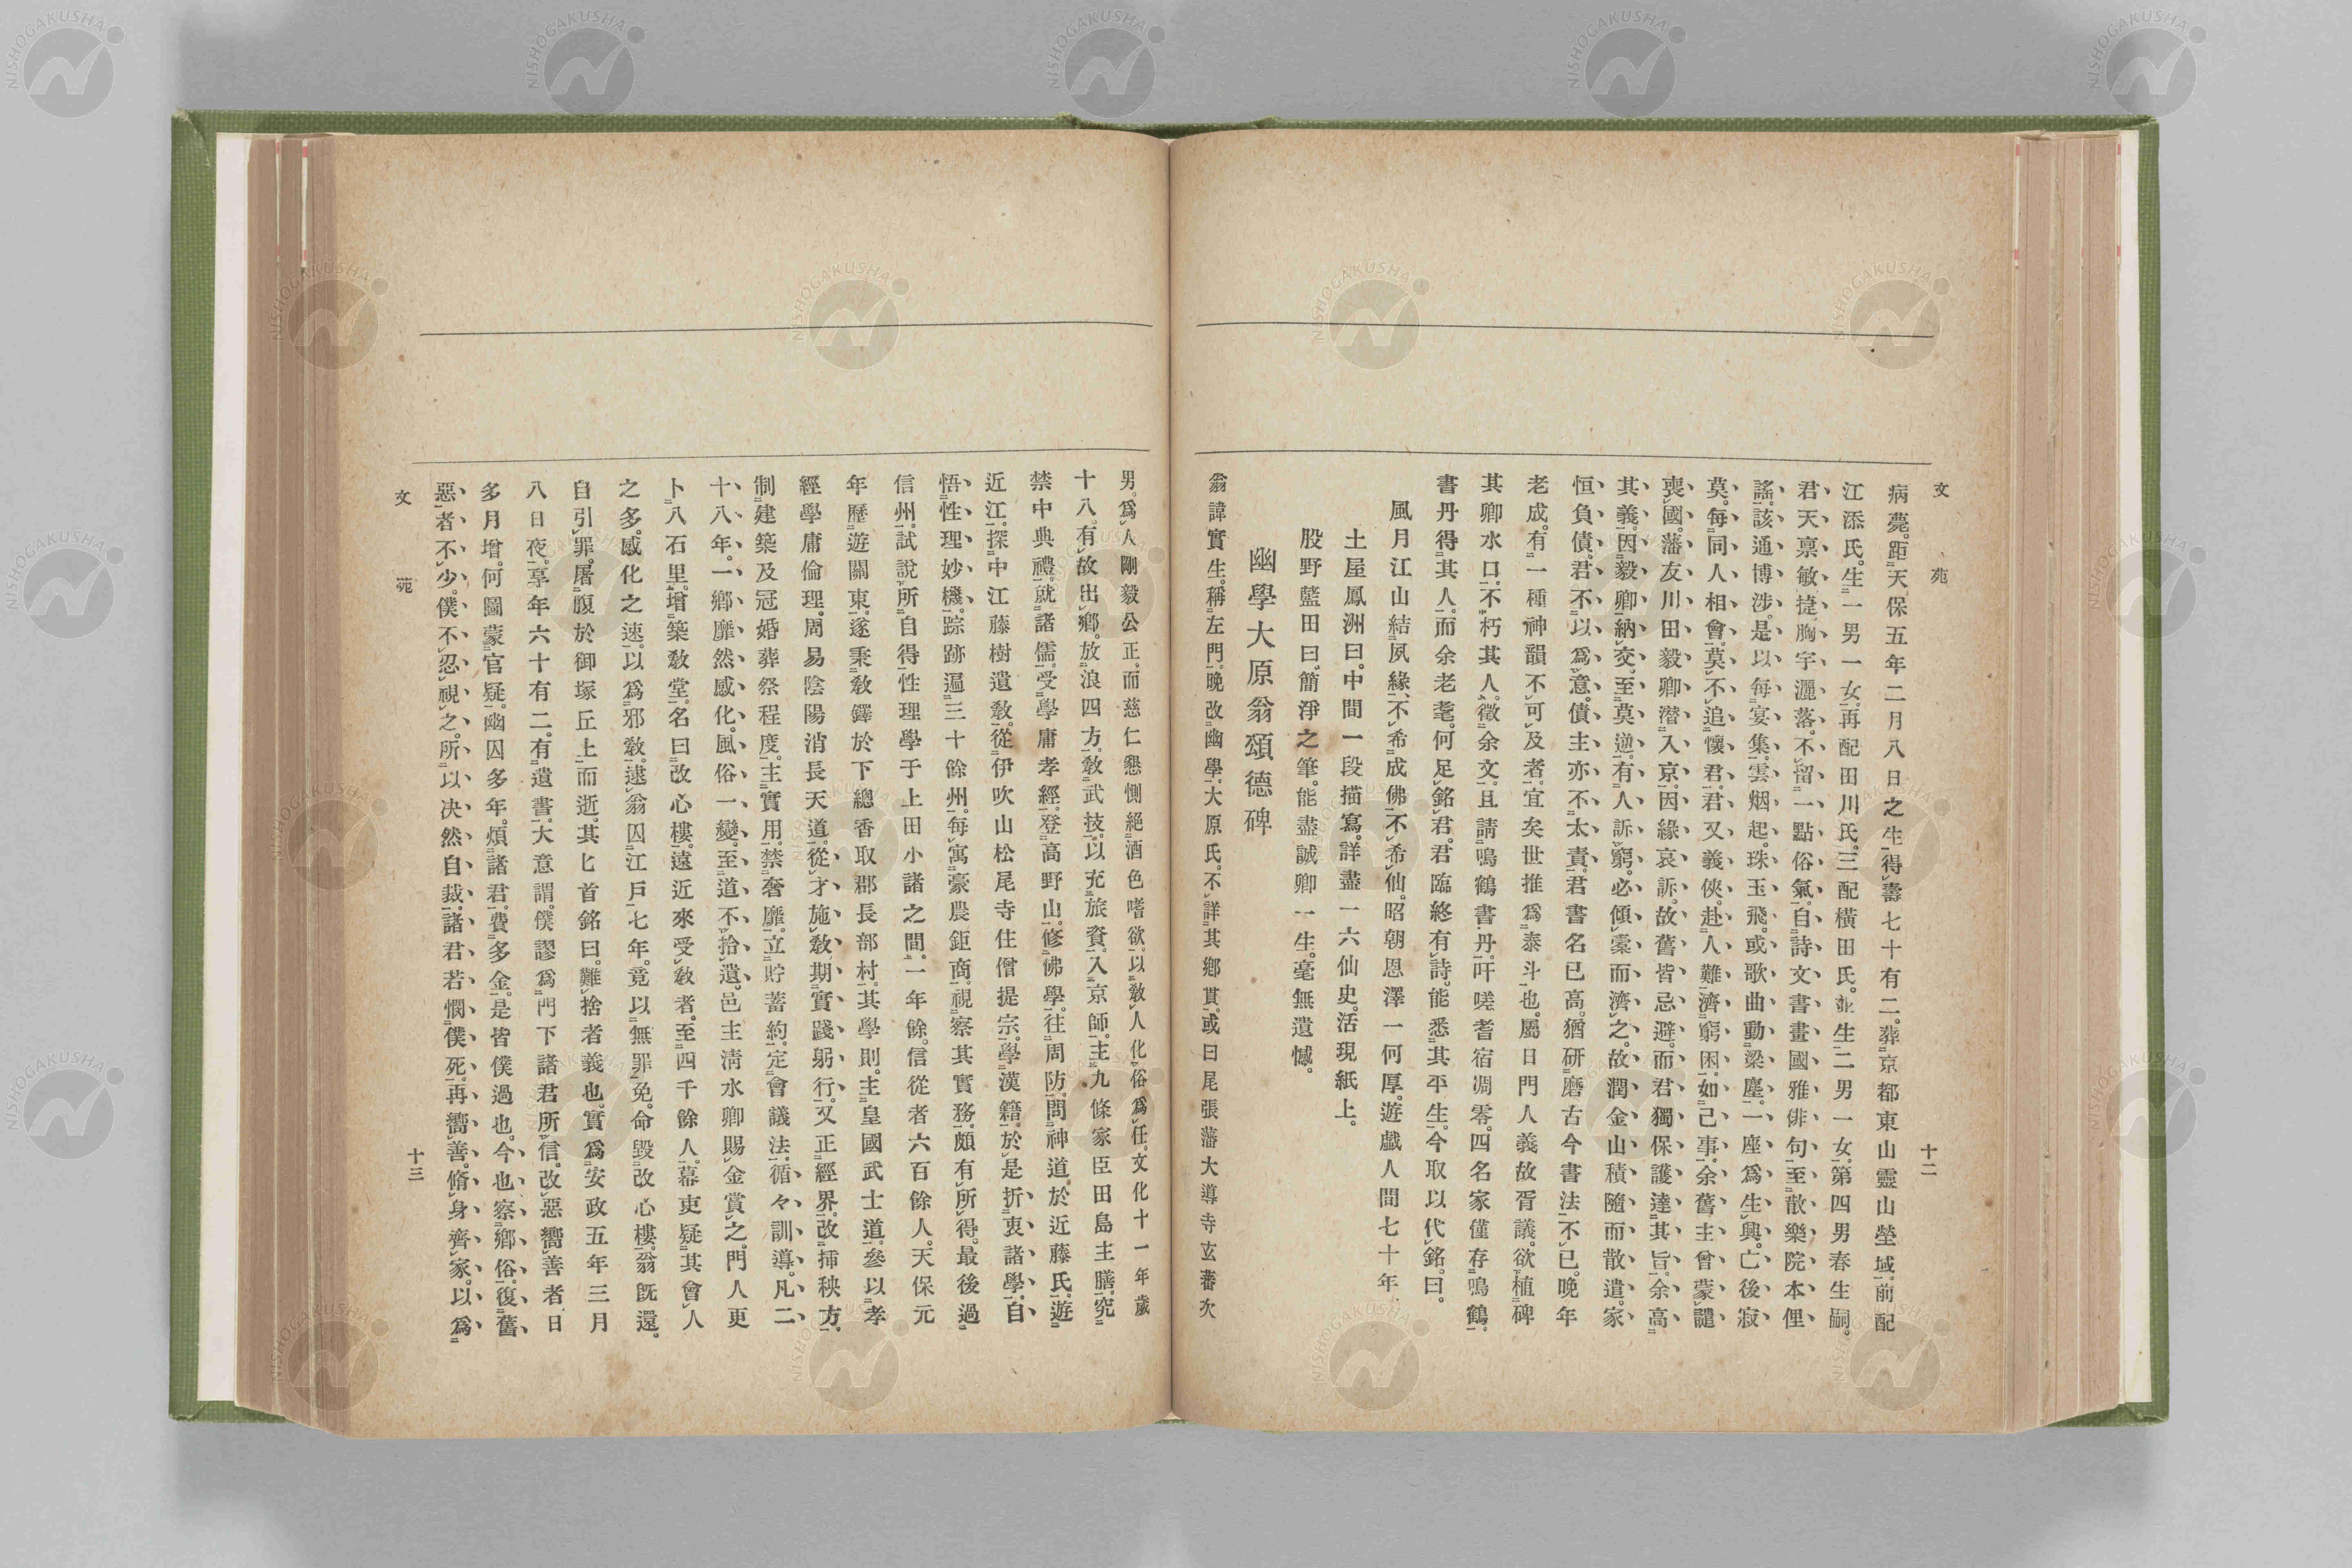 文苑
十二
病薨。距天保五年二月八日之生得壽七十有二。葬京都東山靈山塋域。前配
江添氏。生一男一女。再配田川氏。三配横田氏。並生二男一女。第四男春生嗣。
君天禀敏捷。胸宇灑落。不留一點俗氣。自詩文書畫國雅俳句。至散樂院本俚
謠。該通博渉。是以每宴集。雲烟起。珠玉飛。或歌曲動梁塵。一座爲生興。亡後寂
莫。每同人相會。莫不追懷君。君又義俠。赴人難濟窮困。如己事。余舊主曾蒙譴
喪國。藩友川田毅卿潜入京。因緣哀訴。故舊皆忌避。而君獨保護達其旨。余高
其義。因毅卿納交。至莫逆。有人訴窮。必傾橐而濟之。故潤金山積隨而散遣。家
恒負債。君不以爲意。債主亦不太責。君書名已高。猶研磨古今書法不已。晩年
老成。有一種神韻不可及者。宜矣世推爲泰斗也。屬日門人義故胥議。欲植碑
其卿水口。不朽其人。徵余文。且請鳴鶴書丹。吁嗟耆宿凋零。四名家僅存鳴鶴。
書丹得其人。而余老耄。何足銘君。君臨終有詩。能悉其平生。今取以代銘。曰。
風月江山結夙緣。不希成佛不希仙。昭朝恩澤一何厚。遊戲人間七十年。
土屋鳳洲曰。中間一段描寫。詳盡一六仙史。活現紙上。
股野藍田曰。簡淨之筆。能盡誠卿一生。毫無遺憾。
幽學大原翁頌德碑
翁諱實生。稱左門。晩改幽學。大原氏。不詳其鄕貫。或曰尾張藩大導寺玄蕃次
男。爲人剛毅公正。而慈仁懇惻絕酒色嗜欲。以敎人化俗爲任。文化十一年歲
十八。有故出鄕。放浪四方。敎武技。以充旅資。入京師。主九條家臣田島主膳。究
禁中典禮。就諸儒。受學庸孝經。登高野山。修佛學。往周防。問神道於近藤氏。遊
近江。探中江藤樹遺敎。從伊吹山松尾寺住僧提宗。學漢籍。於是折衷諸學。自
悟性理妙機。踪跡遍三十餘州。每寓豪農鉅商。視察其實務。頗有所得。最後過
信州。試說所自得性理學于上田小諸之間。一年餘。信從者六百餘人。天保元
年歷遊關東。遂秉敎鐸於下總香取郡長部村。其學則。主皇國武士道。參以孝
經學庸倫理。周易陰陽消長天道。從才施敎。期實踐躬行。又正經界。改挿秧方。
制建築及冠婚葬祭程度。主實用。禁奢靡。立貯蓄約。定會議法。循々訓導。凡二
十八年。一鄕靡然感化。風俗一變。至道不拾遺。邑主淸水卿賜金賞之。門人更
卜八石里。增築敎堂。名曰改心樓。遠近來受敎者。至四千餘人。幕吏疑其會人
之多。感化之速。以爲邪敎。逮翁囚江戶七年。竟以無罪免。命毀改心樓。翁旣還。
自引罪。屠腹於御塚丘上而逝。其匕首銘曰。難捨者義也。實爲安政五年三月
八日夜。享年六十有二。有遺書。大意謂。僕謬爲門下諸君所信。改惡嚮善者。日
多月增。何圖蒙官疑。幽囚多年。煩諸君。費多金。是皆僕過也。今也察鄕俗。復舊
惡者不少。僕不忍視之。所以決然自裁。諸君若憫僕死。再嚮善。脩身齊家。以爲
文苑
十三